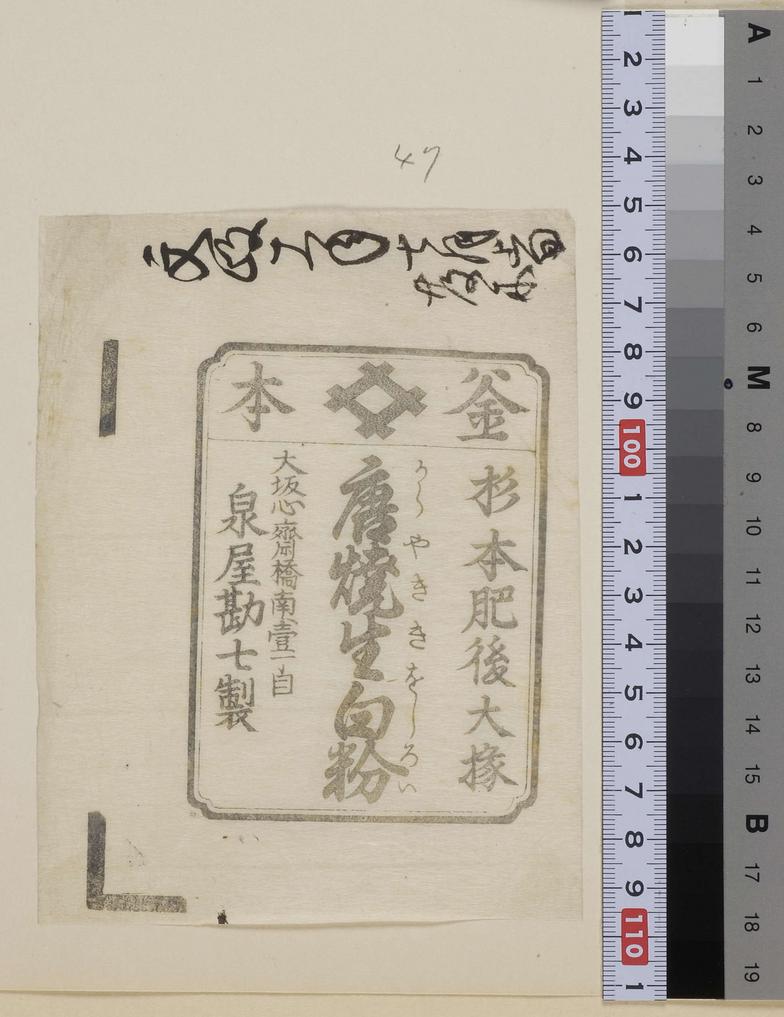 47
釜 本
杉本肥後大掾
からやききをしろい
唐燒生白粉
大坂心齋橋南壹丁目
泉屋勘七製
1 2 3 4 5 6 7 8 9 100 1 2 3 4 5 6 7 8 9 110 1
A 1 2 3 4 5 6 M 8 9 10 11 12 13 14 15 B 17 18 19